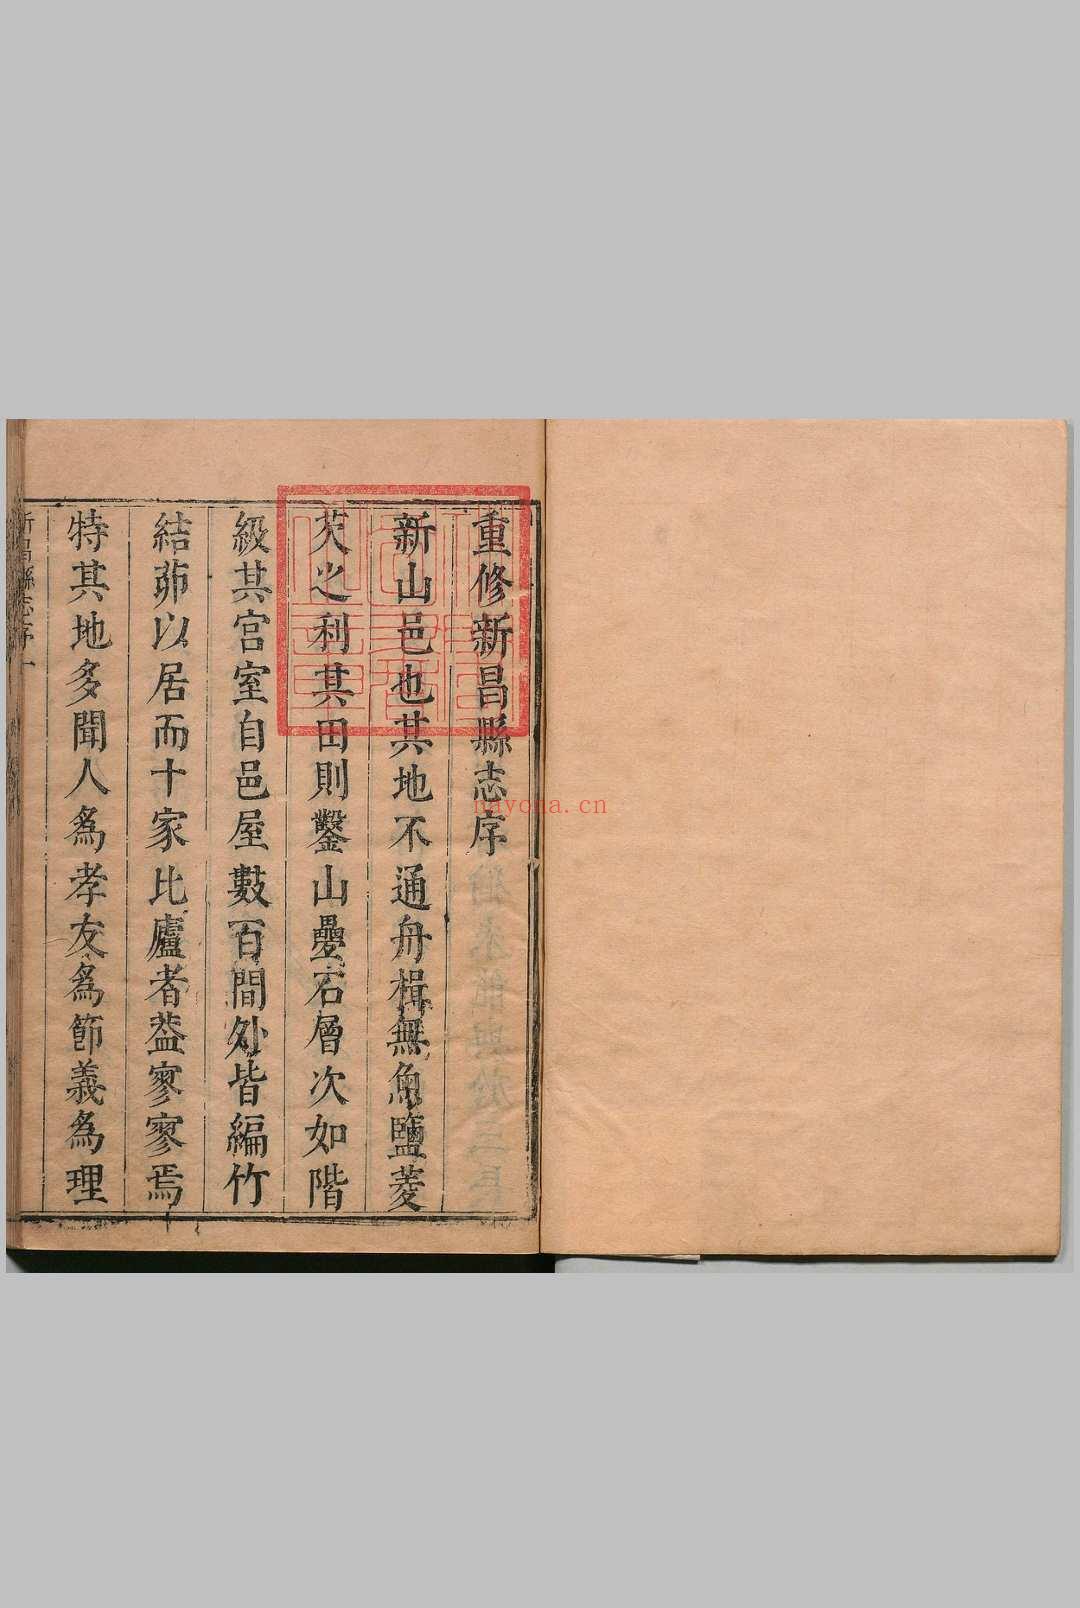 重修新昌縣志序
新山邑也其地不通舟楫無魚鹽菱
芡之利其田則鑿山疊石層次如階
級其宮室自邑屋數百間外皆編竹
結茆以居而十家比廬者葢寥寥焉
特其地多聞人為孝友為節義為理
新昌縣志序一
nayona.cn